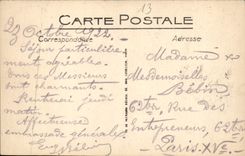 13
CARTE POSTALE
Correspondance
Adresse
23 Octobre 1922
Séjour particulière-
ment agréable.
Tous ces Messieurs
sont charmants.
Rentrerai jeudi
matin.
Affectueuse
embrassade générale.
Eug Bébin
Madame &
Mesdemoiselles
Bébin
6ter, Rue des
Entrepreneurs, 6ter
Paris. XVe.